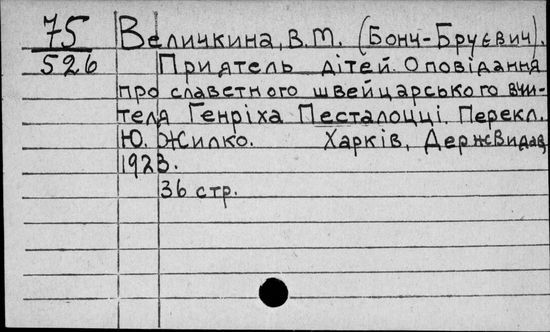 75 Величкина, В.М. (Бонч-Бруєвич).
526 Приятель дітей. Оповідання
про славетного швейцарського вчи-
теля Генріха Песталоцці. Перекл.
Ю. Жилко. Харків, Держвидав,
1923.
36 стр.